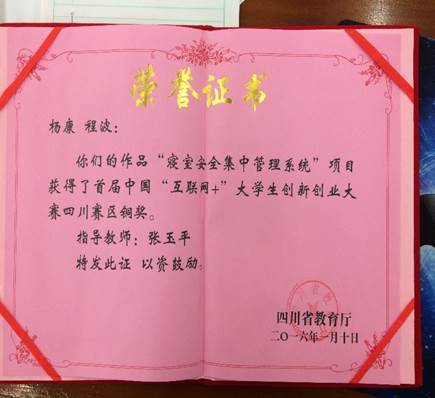 荣誉证书
杨康 程波：
你们的作品“寝室安全集中管理系统”项目
获得了首届中国“互联网+”大学生创新创业大
赛四川赛区铜奖。
指导教师：张玉平
特发此证 以资鼓励。
四川省教育厅
二〇一六年一月十日